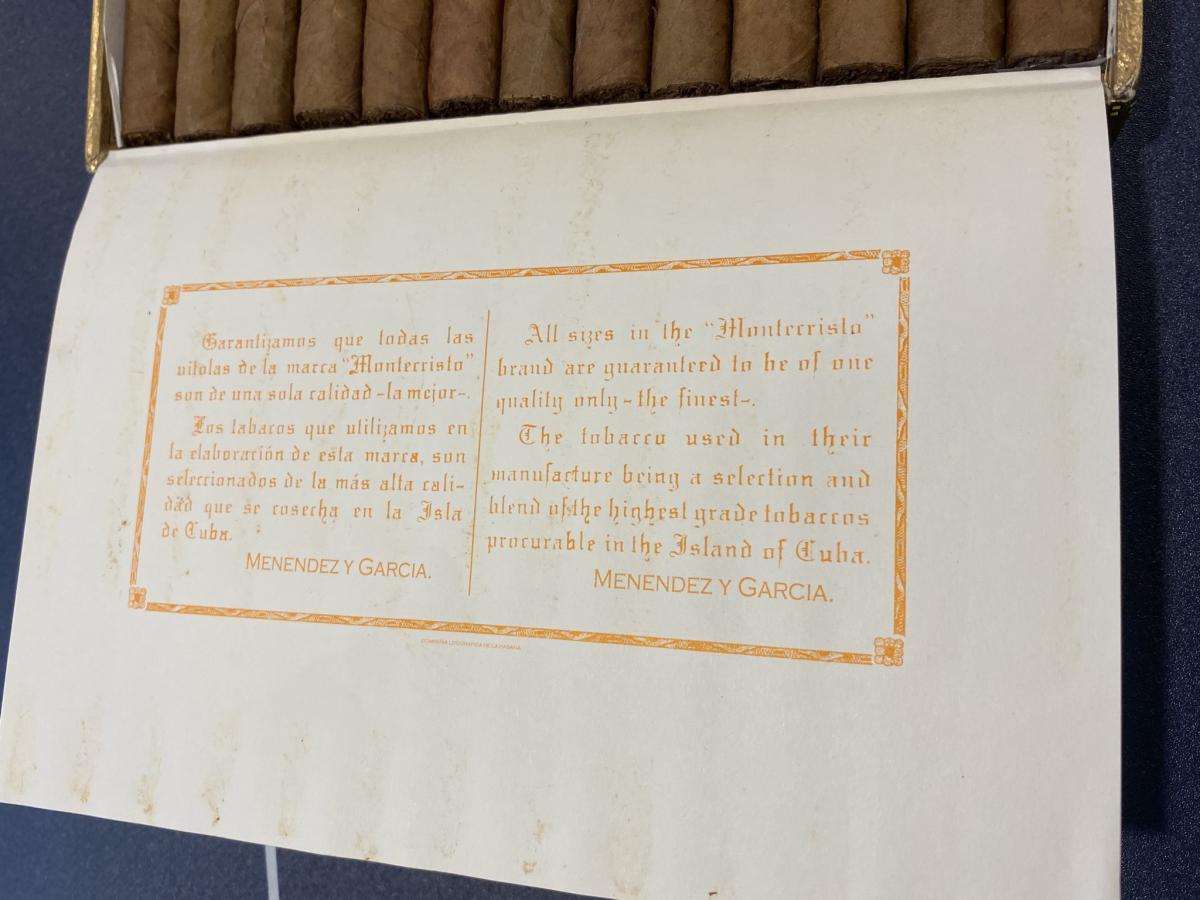 Garantizamos que todas las
vitolas de la marca "Montecristo"
son de una sola calidad -la mejor-.
Los tabacos que utilizamos en
la elaboración de esta marca, son
seleccionados de la más alta cali-
dad que se cosecha en la Isla
de Cuba.
MENENDEZ Y GARCIA.
All sizes in the "Montecristo"
brand are guaranteed to be of one
quality only - the finest-.
The tobacco used in their
manufacture being a selection and
blend of the highest grade tobaccos
procurable in the Island of Cuba.
MENENDEZ Y GARCIA.
COMPAÑIA LITOGRAFICA DE LA HABANA